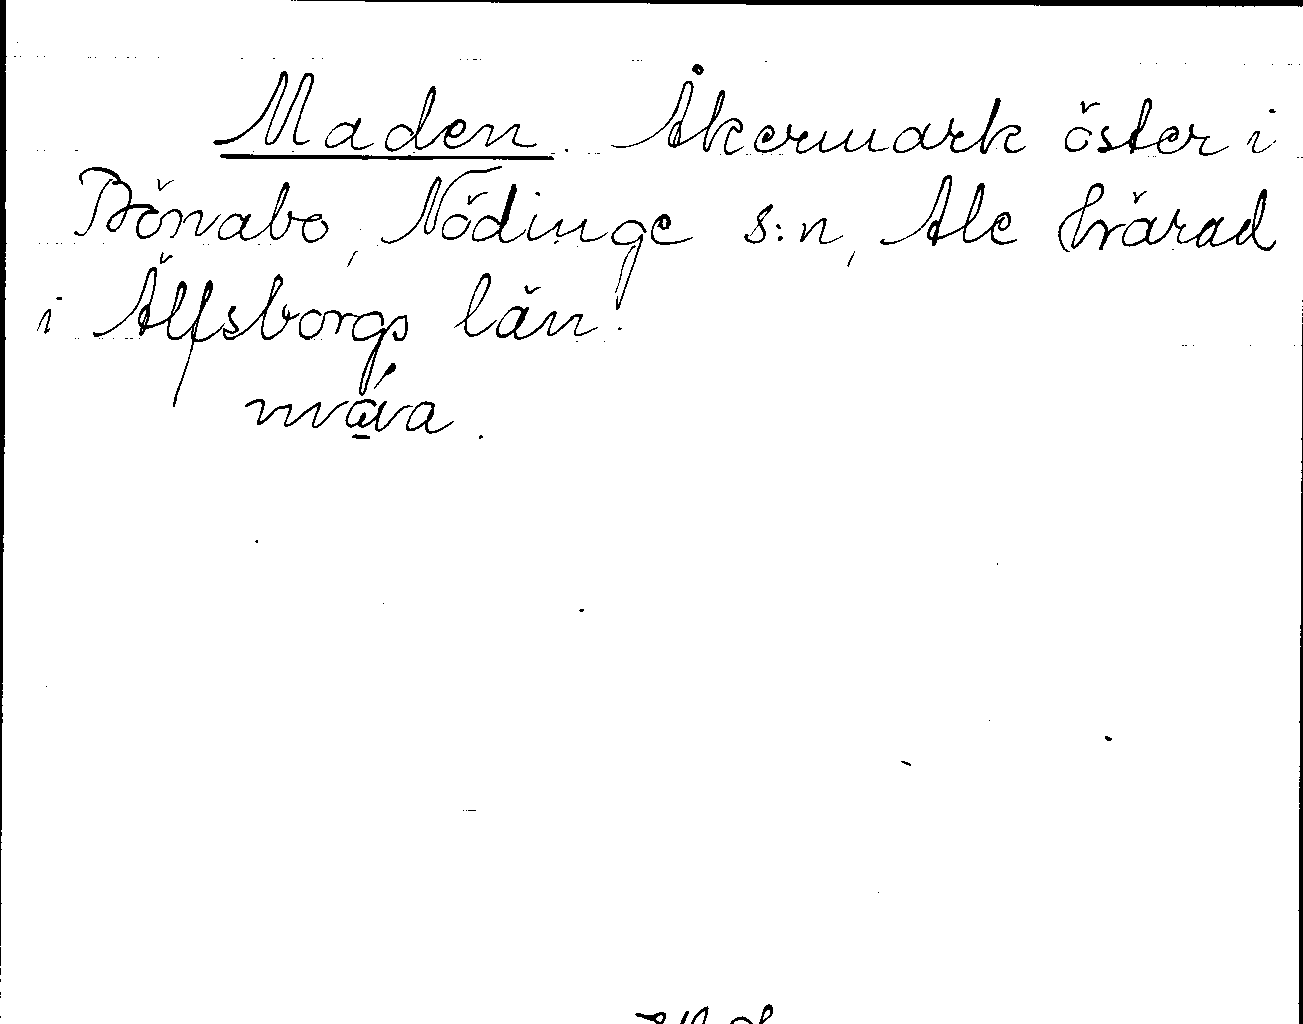 Maden. Åkermark öster i
Bönabo, Nödinge s:n, Ale härad
i Älfsborgs län.